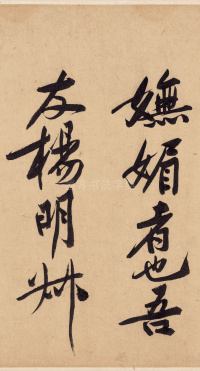 嫵媚者也吾
友楊明叔